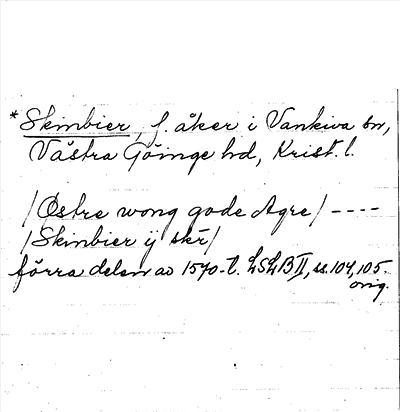 *Skinbier, f. åker i Vankiva sn,
Västra Göinge hd, Krist. l.
/Østre wong gode Agre/ ----
/Skinbier ij skr/
förra delen av 1570-t. LSLB II, ss. 104, 105.
orig.